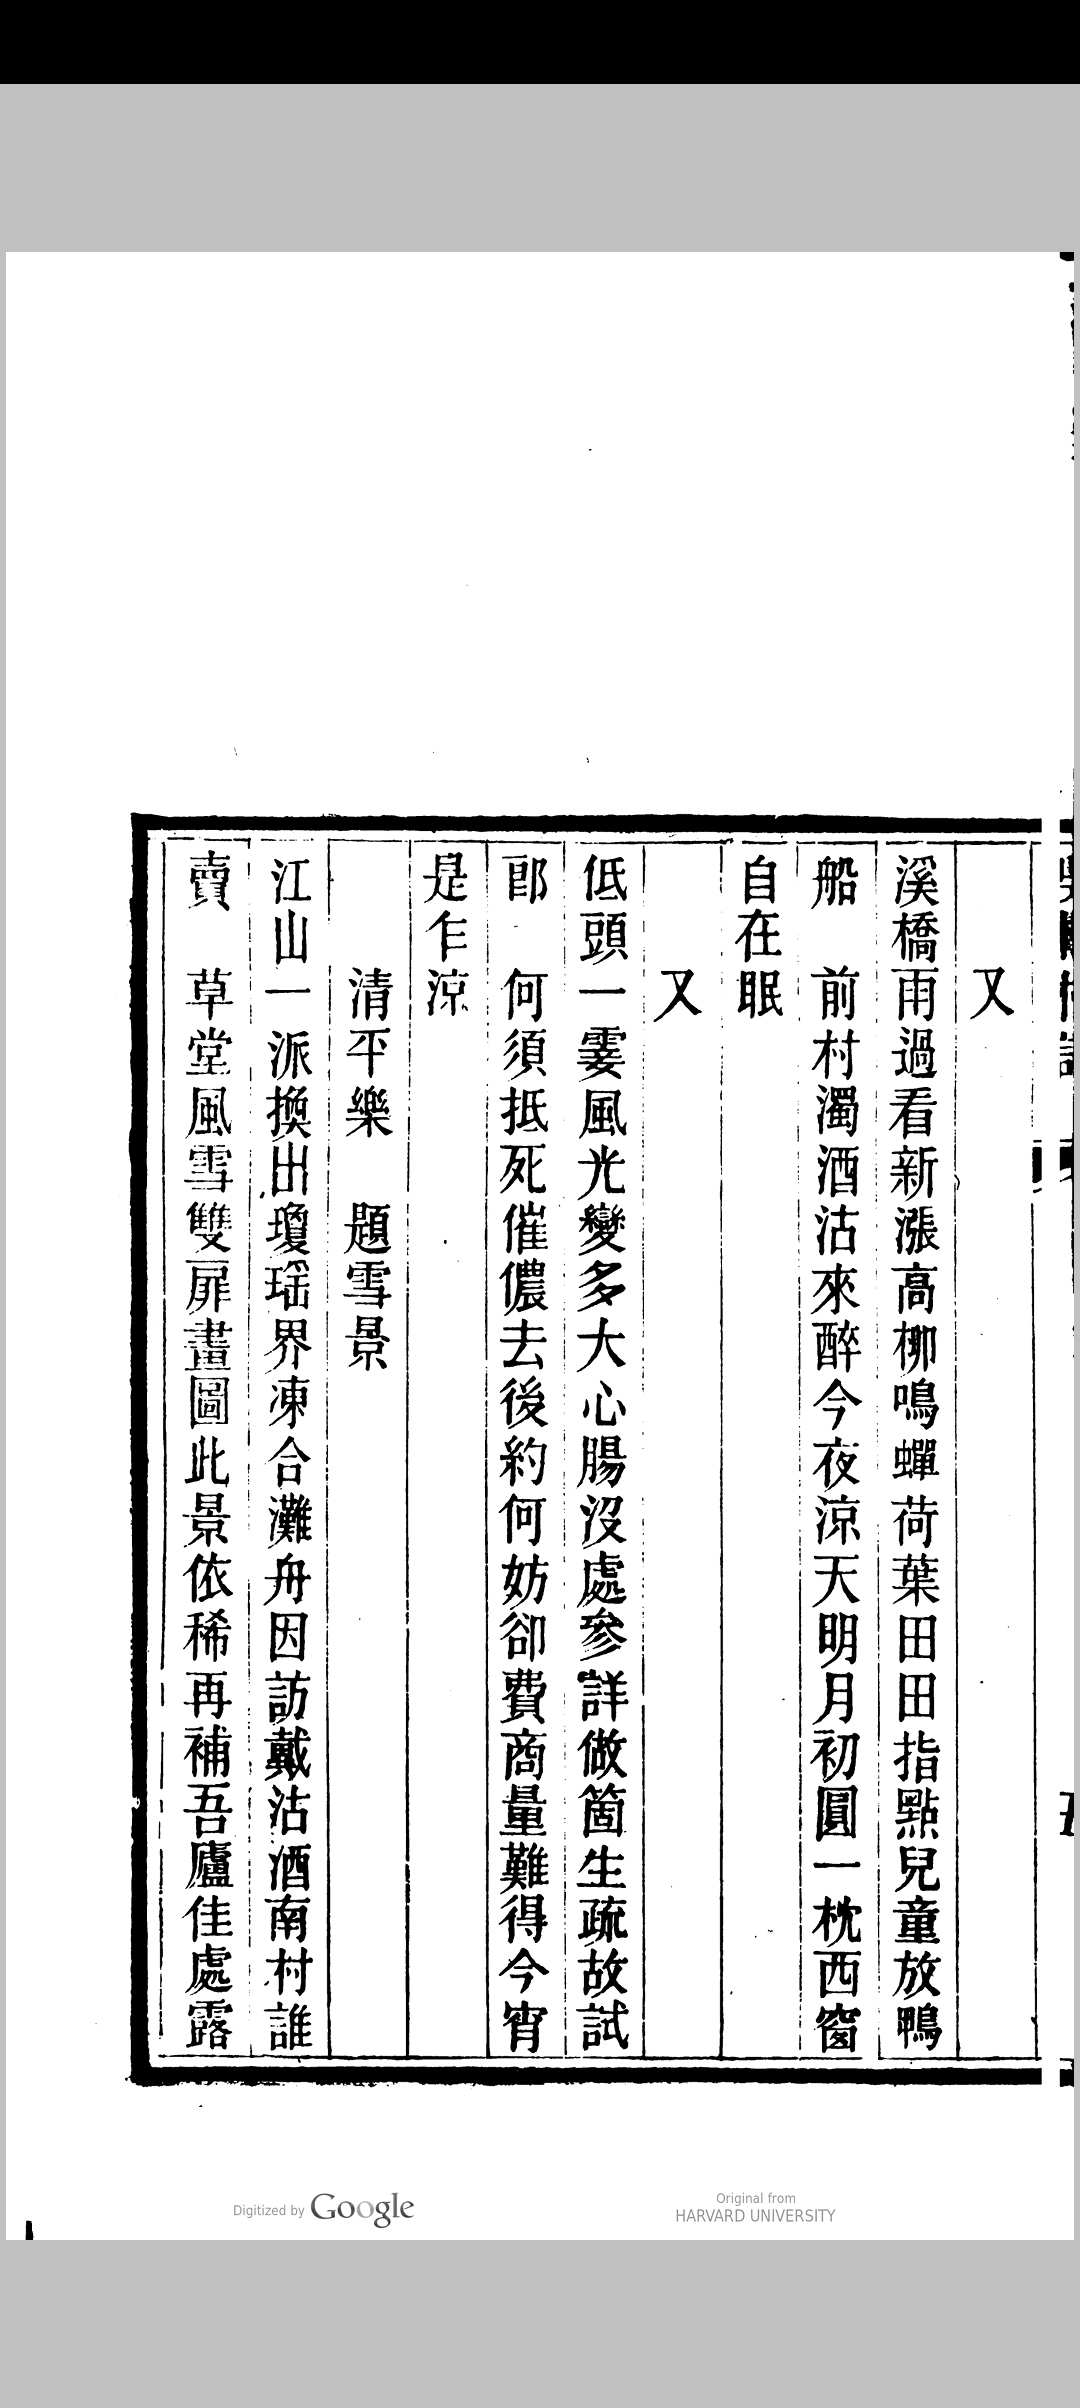 又
溪橋雨過看新漲高柳鳴蟬荷葉田田指點兒童放鴨
船　前村濁酒沽來醉今夜涼天明月初圓一枕西窗
自在眠
又
低頭一霎風光變多大心腸沒處參詳做箇生疏故試
郎　何須抵死催儂去後約何妨卻費商量難得今宵
是乍涼
清平樂　題雪景
江山一派換出瓊瑤界凍合灘舟因訪戴沽酒南村誰
賣　草堂風雪雙扉畫圖此景依稀再補吾廬佳處露
Digitized by Google
Original from
HARVARD UNIVERSITY